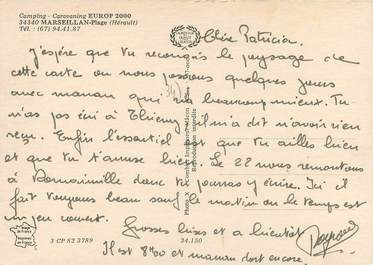 Camping - Caravaning EUROP 2000
34340 MARSEILLAN-Plage (Hérault)
Tél. : (67) 94.41.87
Chère Patricia.
J'espère que tu reconnais le paysage de
cette carte où nous passons quelques jours
avec maman qui va beaucoup mieux. Tu
n'as pas écrit à Thierry il m'a dit n'avoir rien
reçu. Enfin l'essentiel est que tu ailles bien
et que tu t'amuse bien. Le 22 nous remontons
à donc tu pourras y écrire. Ici il
fait toujours beau sauf le matin où le temps est
un peu couvert.
Grosses bises et a bientôt
Il est 8h00 et maman dort encore.
Reproduction interdite
3 CP 82 3789
34.150